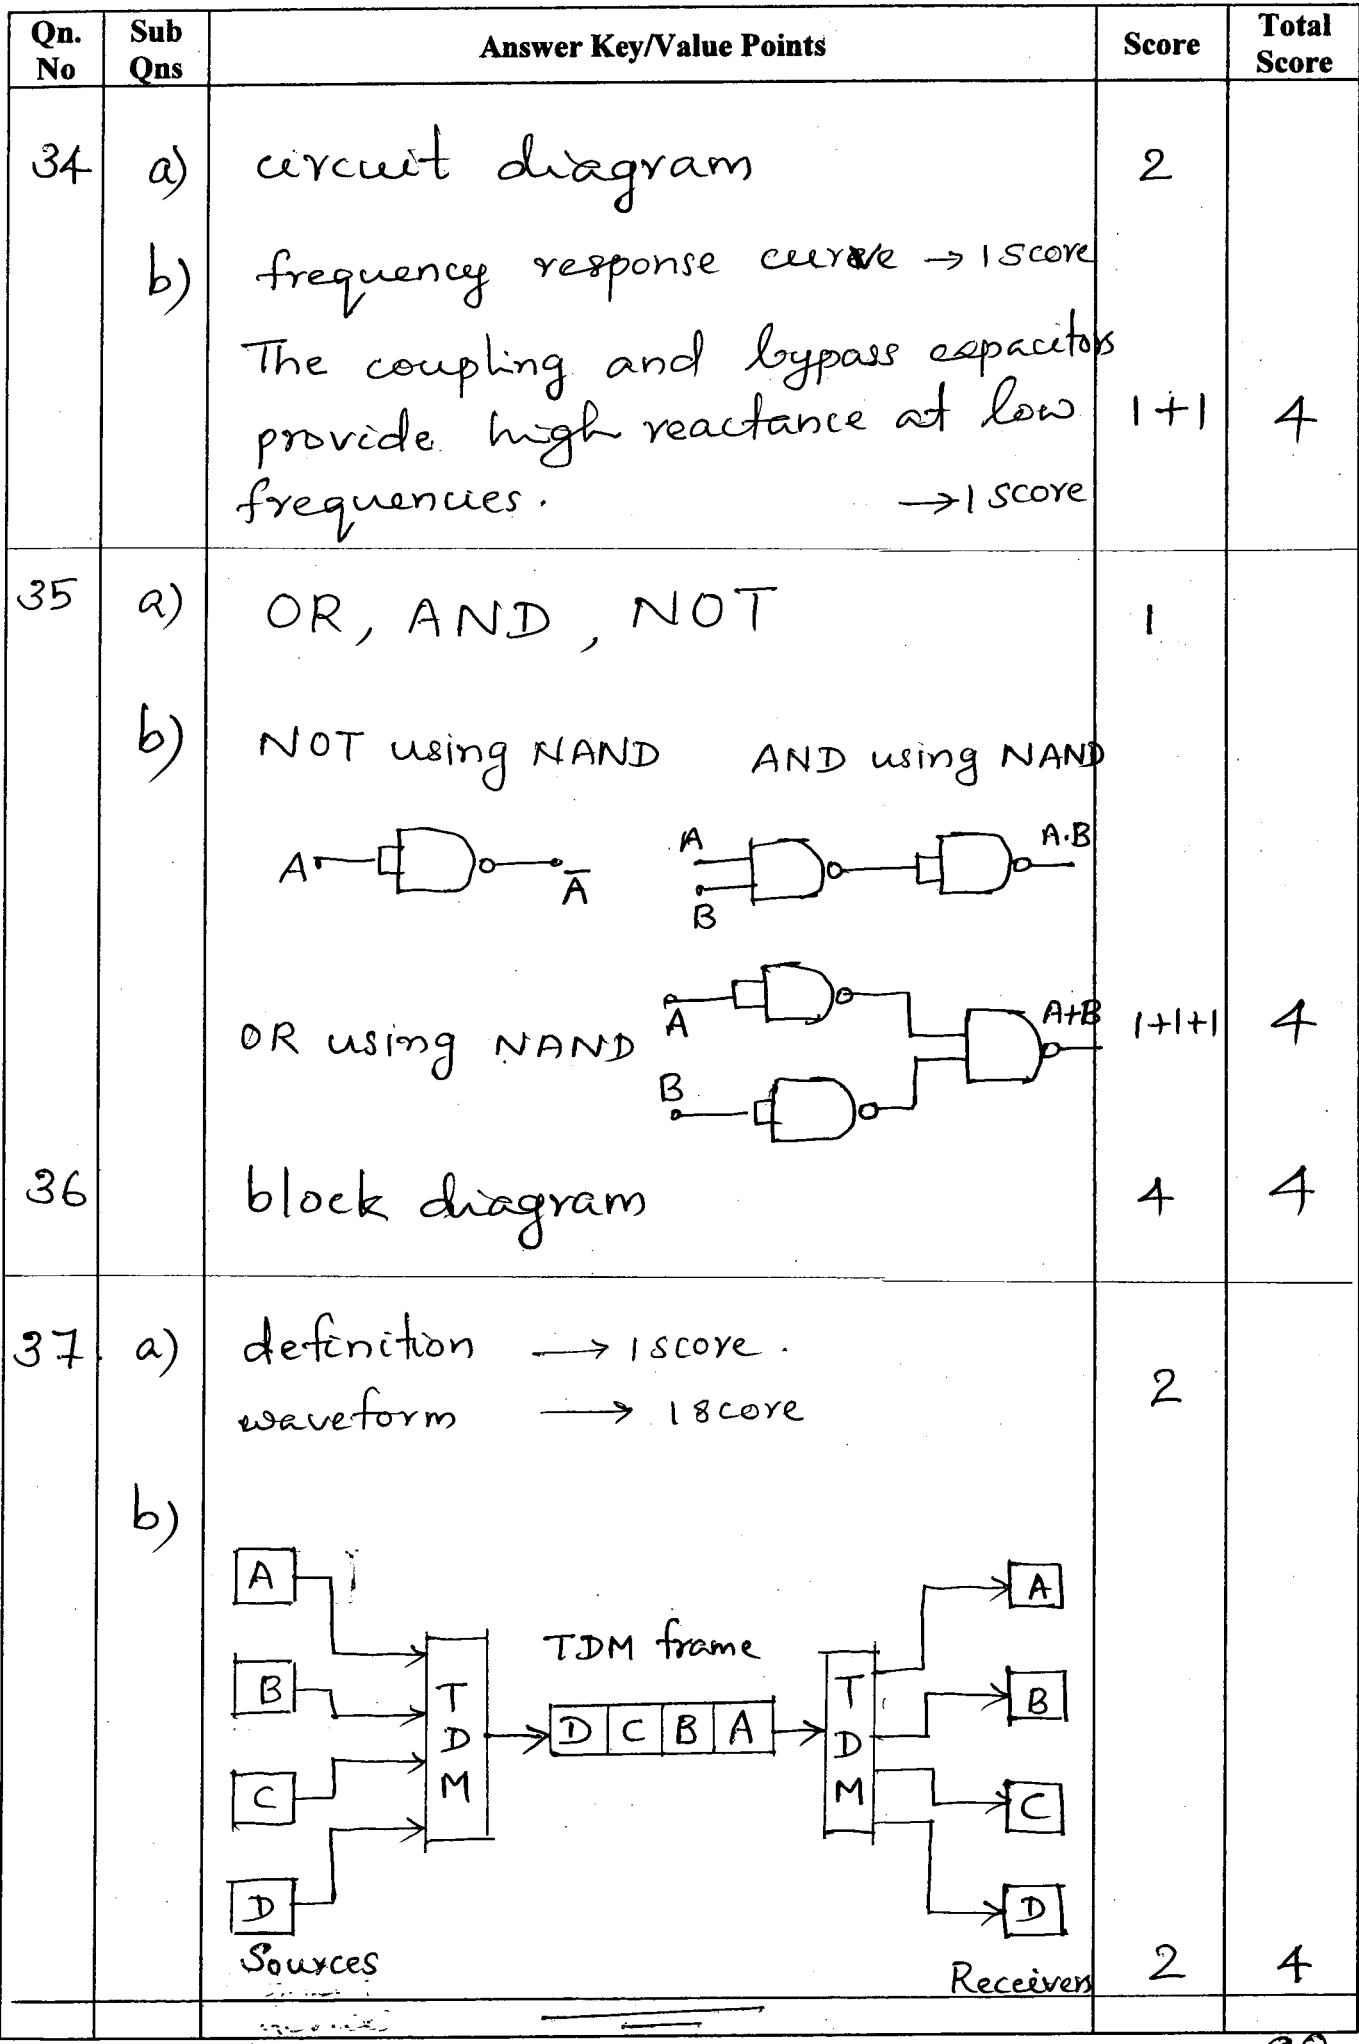 Qn. No Sub Qns Answer Key/Value Points Score Total Score
34 a) circuit diagram 2
b) frequency response curve → 1 score
The coupling and bypass capacitors
provide high reactance at low 1+1 4
frequencies. → 1 score
35 a) OR, AND, NOT 1
b) NOT using NAND AND using NAND
A Ā A B A.B
OR using NAND A B A+B 1+1+1 4
36 block diagram 4 4
37 a) definition → 1 score.
waveform → 1 score 2
b)
A A
TDM frame
B TDM D C B A TDM B
C C
D D
Sources Receivers 2 4